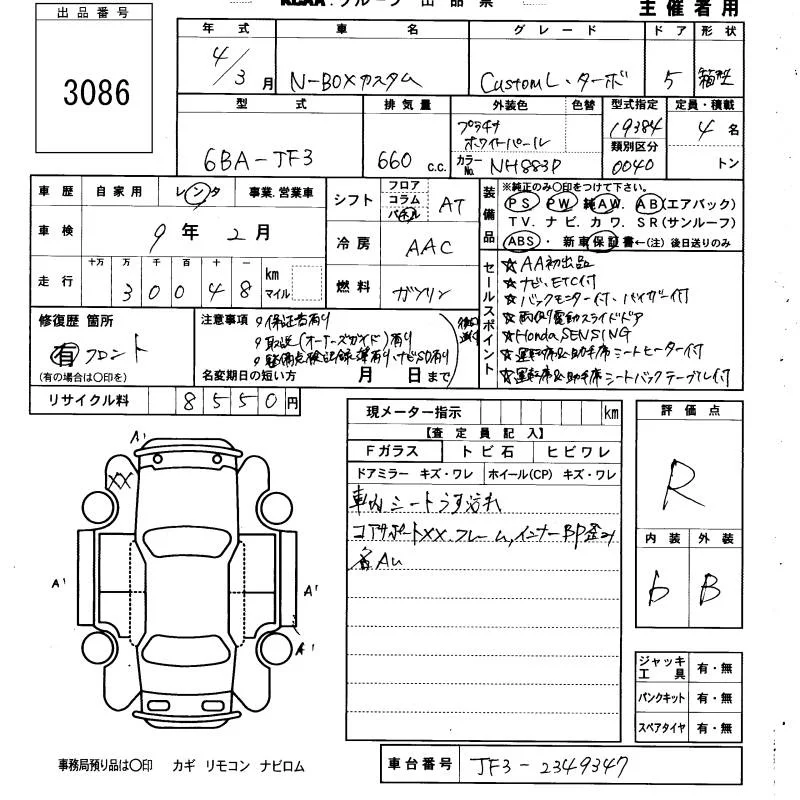 KCAA.グループ 出品票
主催者用
出品番号
3086
年式 車名 グレード ドア 形状
4/3月 N-BOXカスタム Custom L・ターボ 5 箱型
型式 排気量 外装色 色替 型式指定 定員・積載
6BA-JF3 660 c.c. プラチナ ホワイトパール 19384 4 名
カラーNo. NH883P 類別区分 0040 トン
車歴 自家用 レンタ 事業.営業車
車検 9年2月
走行 十万 万 千 百 十 一
30048 km マイル
シフト フロア コラム パネル AT
冷房 AAC
燃料 ガソリン
装備品 ※純正のみ○印をつけて下さい。
PS PW 純AW. AB(エアバック)
TV. ナビ. カワ. SR(サンルーフ)
ABS・新車保証書←(注)後日送りのみ
セールスポイント
☆AA初出品
☆ナビ、ETC付
☆バックモニター付、バイザー付
☆両側電動スライドドア
☆Honda SENSING
☆運転席&助手席シートヒーター付
☆運転席&助手席シートバックテーブル付
修復歴 箇所
有 フロント
(有の場合は○印を)
注意事項 保証書有り
取説(オーナーズガイド)有り
整備点検記録簿有り、ナビSD有り
後日送付
名変期日の短い方 月 日まで
リサイクル料 8550円
現メーター指示 km
【査定員記入】
Fガラス トビ石 ヒビワレ
ドアミラー キズ・ワレ ホイール(CP) キズ・ワレ
車内シートうす汚れ
コアサポートXX、フレーム、インナーBP歪み
各AU
評価点
R
内装 外装
b B
A'
XX
A'
A'
A'
ジャッキ工具 有・無
パンクキット 有・無
スペアタイヤ 有・無
事務局預り品は○印 カギ リモコン ナビロム
車台番号 JF3-2349347